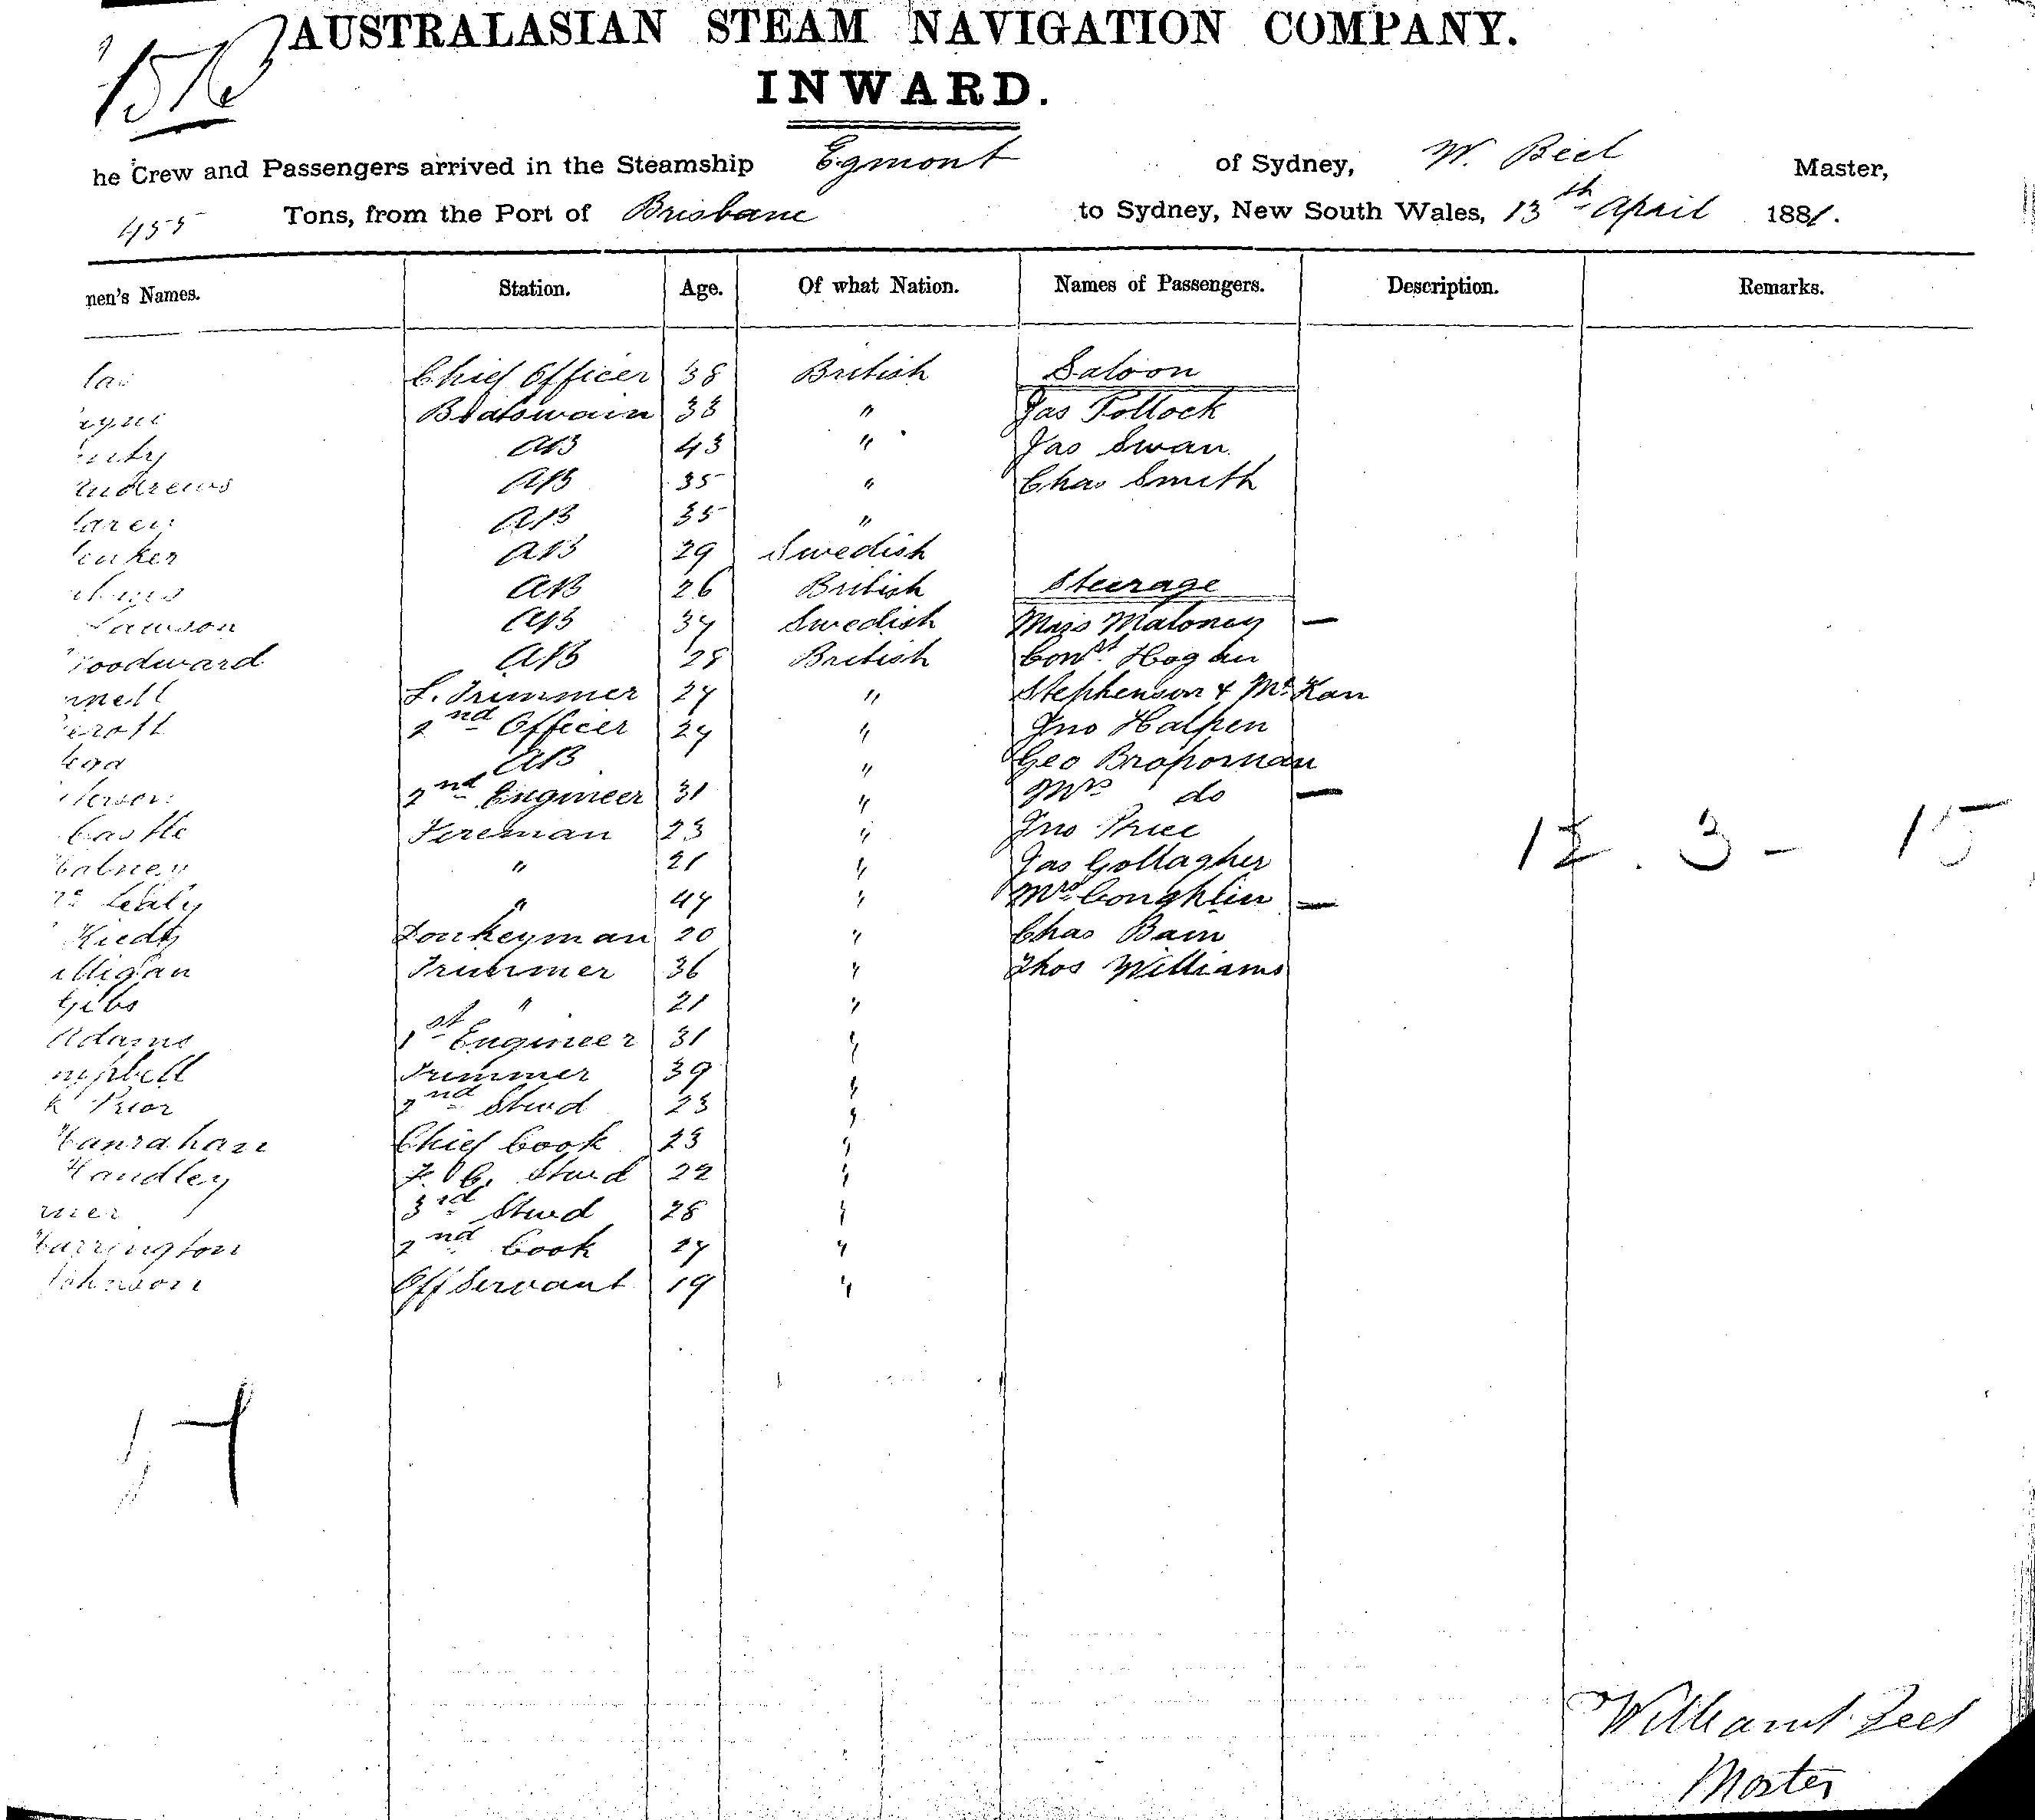 AUSTRALASIAN STEAM NAVIGATION COMPANY.
INWARD.
he Crew and Passengers arrived in the Steamship Egmont of Sydney, W. Beel Master,
455 Tons, from the Port of Brisbane to Sydney, New South Wales, 13th April 1881.
men's Names. Station. Age. Of what Nation. Names of Passengers. Description. Remarks.
Chief Officer 38 British Saloon
Boatswain 33 " Jas Pollock
AB 43 " Jas Swan
Andrews AB 35 " Chas Smith
AB 35 "
AB 29 Swedish
AB 26 British Steerage
Lawson AB 34 Swedish Miss Maloney —
Woodward AB 28 British Const. Hogan
L. Trimmer 24 " Stephenson & McKan
2nd Officer 24 " Jno Halpen
AB " Geo
2nd Engineer 31 " Mrs do —
Castle Fireman 23 " Jno Price
" 21 " Jas Gollagher
12 . 3 - 15
Lealy " 44 " Mrs Coughlin —
Donkeyman 20 " Chas Bain
illigan Trimmer 36 " Thos Williams
Gibs " 21 "
Adams 1st Engineer 31 "
mpbell Trimmer 39 "
k Prior 2nd Stwd 23 "
Hanrahan Chief Cook 23 "
Handley F. C. Stwd 22 "
3rd Stwd 28 "
Harrington 2nd Cook 24 "
Johnson Off Servant 19 "
Master